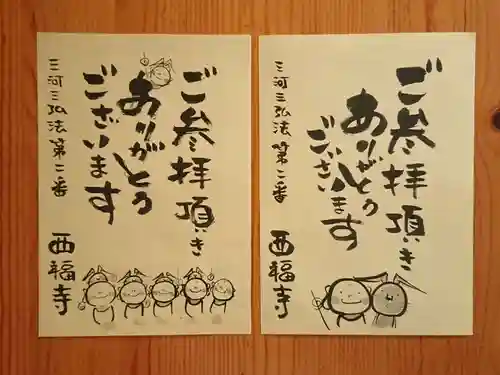 ご参拝頂き
ありがとう
ございます
三河三弘法第二番
西福寺
ご参拝頂き
ありがとう
ございます
三河三弘法第二番
西福寺